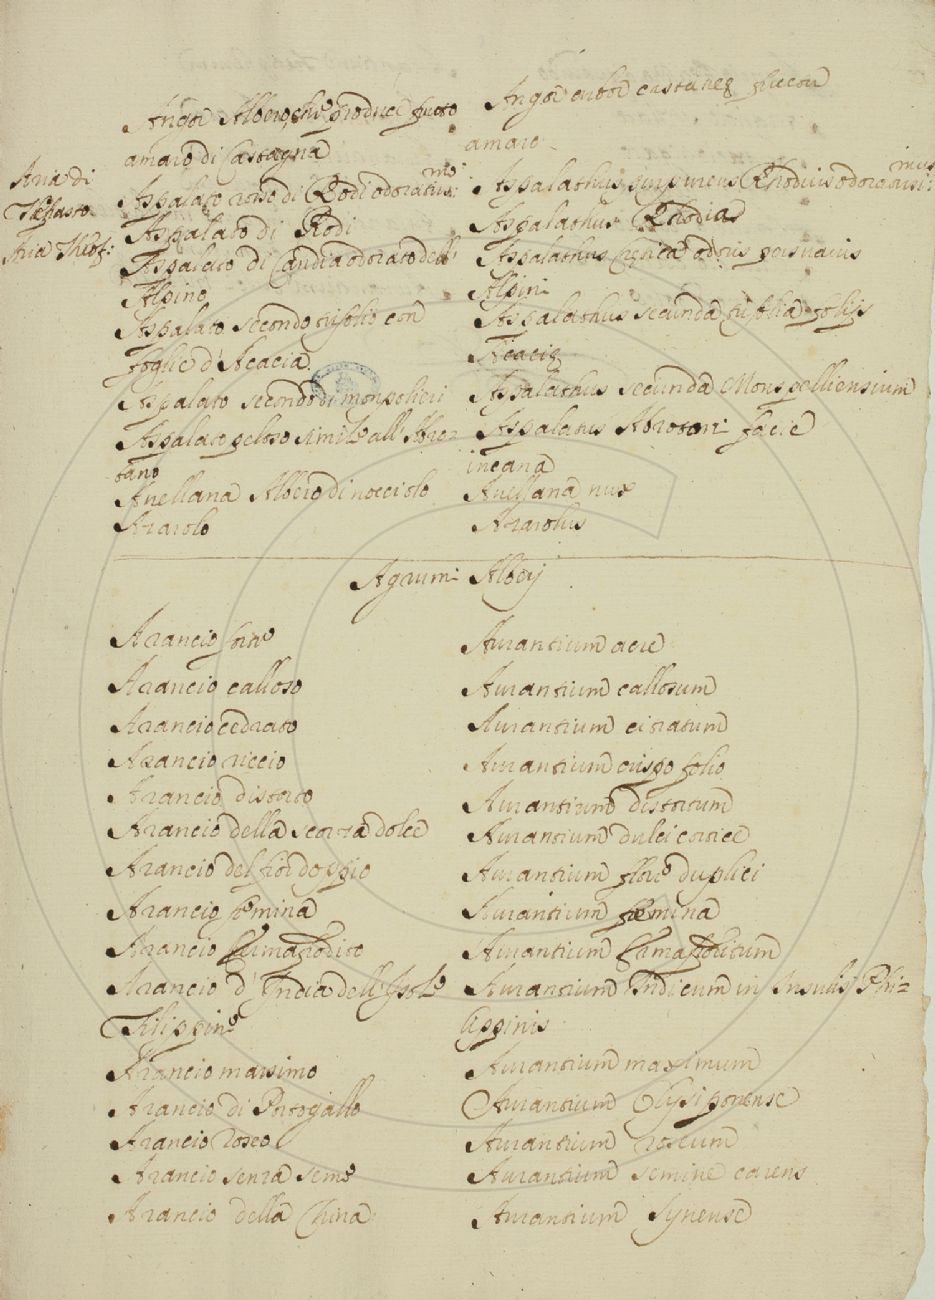 Angox Albero, che produce frutto
amaro di Castagna
Aria di
Tefrasto
Aria Theof:
Aspalato roso di Rodi odoratis:mo
Aspalato di Rodi
Aspalato di Candia odorato dell'
Alpino
Aspalato secondo trifolio con
foglie d'Acacia
Aspalato secondo di monpolieri
Aspalato peloso simile all'Abro=
tano
Avellana Albero di nocciolo
Azarolo
amaro
Aspalathus purpureus Rhodius odoratissi:mus
Aspalathus Rhodias
Aspalathus Cretica odoris persuavis
Alpini
Aspalathus secunda trifolia folijs
Acaciæ
Aspalathus secunda Monspelliensium
Aspalatus Abrotani facie
incana
Avellana nux
Azarolus
Agrumi Alberj
Arancio forte
Arancio calloso
Arancio cedrato
Arancio riccio
Arancio distorto
Arancio della scorza dolce
Arancio del fior doppio
Arancio femina
Arancio Ermafrodito
Arancio d'India dell'Isole
Filippine
Arancio massimo
Arancio di Portogallo
Arancio roseo
Arancio senza seme
Arancio della China
Aurantium acre
Aurantium callosum
Aurantium citratum
Aurantium crispo folio
Aurantium distortum
Aurantium dulci cortice
Aurantium flore duplici
Aurantium fæmina
Aurantium Ermafroditum
Aurantium Indicum in Insulis Phi=
lippinis
Aurantium maximum
Aurantium Olysiponense
Aurantium roseum
Aurantium semine carens
Aurantium Synense